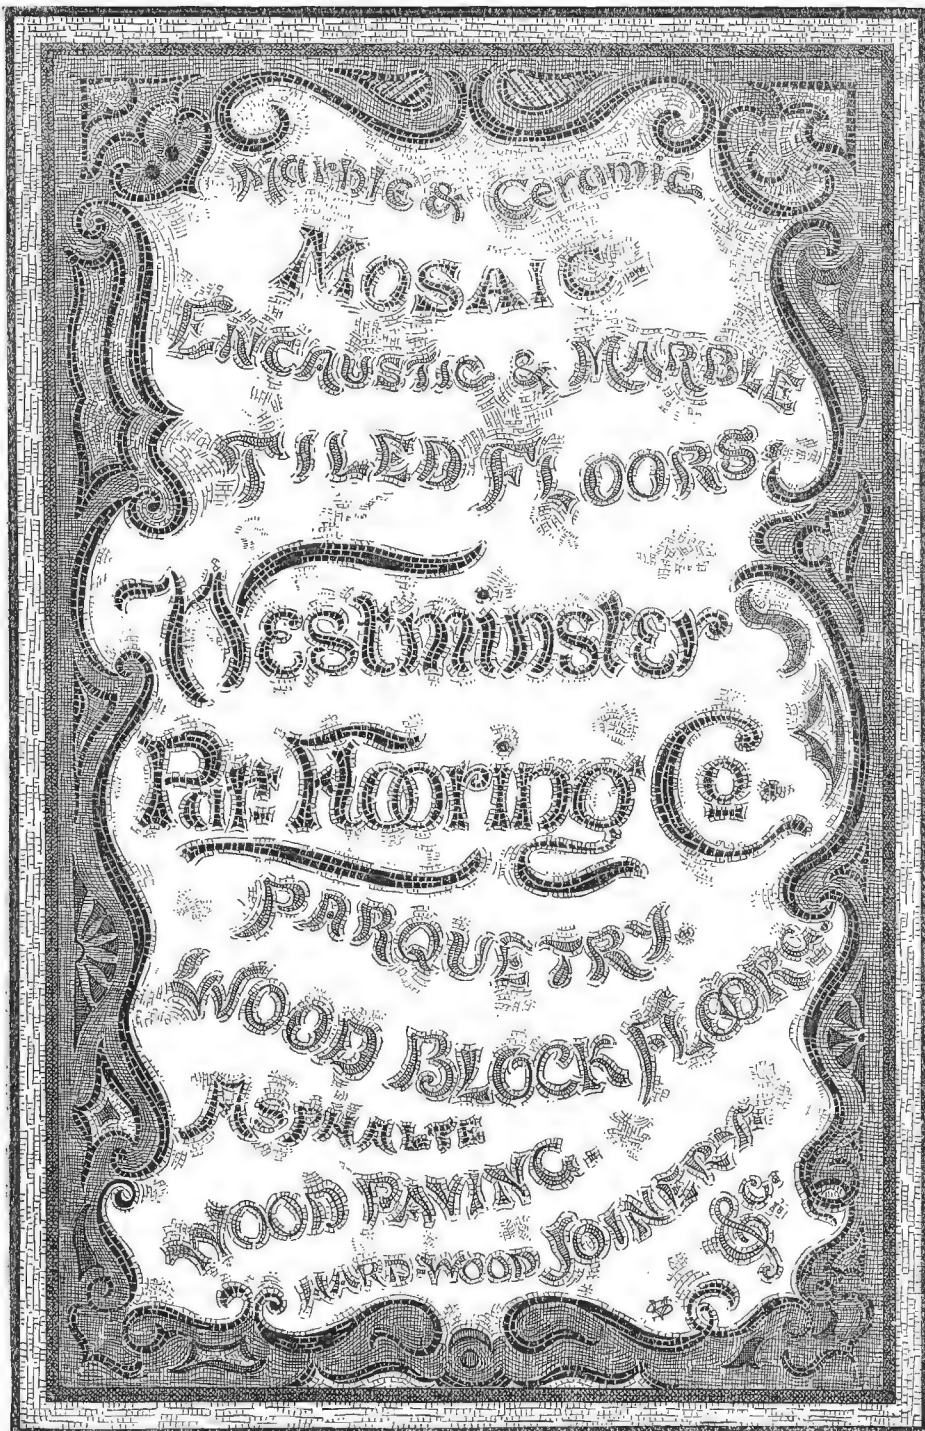 Marble & Ceramic
MOSAIC
ENCAUSTIC & MARBLE
TILED FLOORS.
Westminster
Patt Flooring Co.
PARQUETRY.
WOOD BLOCK FLOORS.
ASPHALTE
WOOD PAVING.
HARD-WOOD JOINERY
&c.